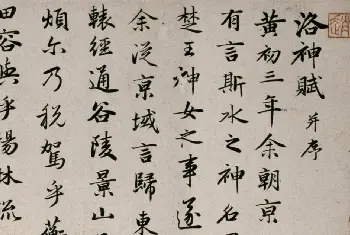 洛神賦 并序
黄初三年余朝京
有言斯水之神名
楚王神女之事遂
余從京域言歸東
轅經通谷陵景山
煩尔乃税駕乎蘅
田容與乎林流